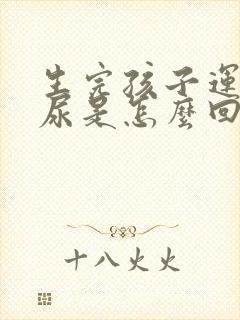 生完孩子運
尿是怎麼回
十八火火